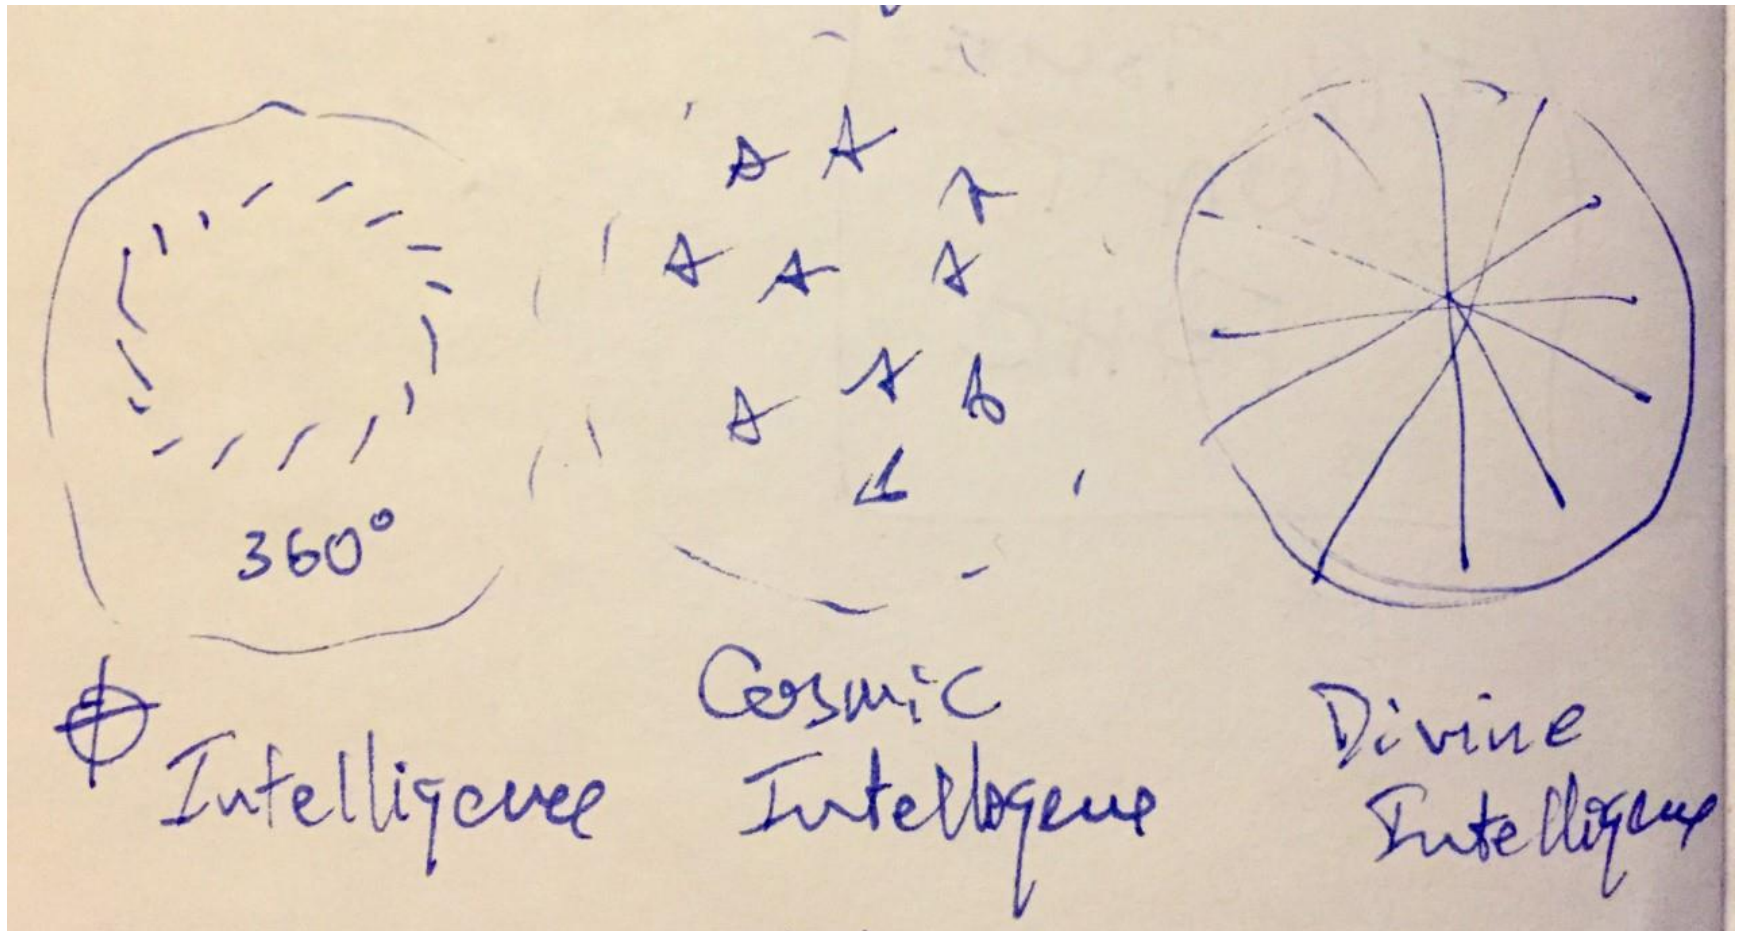 360°
Intelligence
Cosmic
Intelligence
Divine
Intelligence